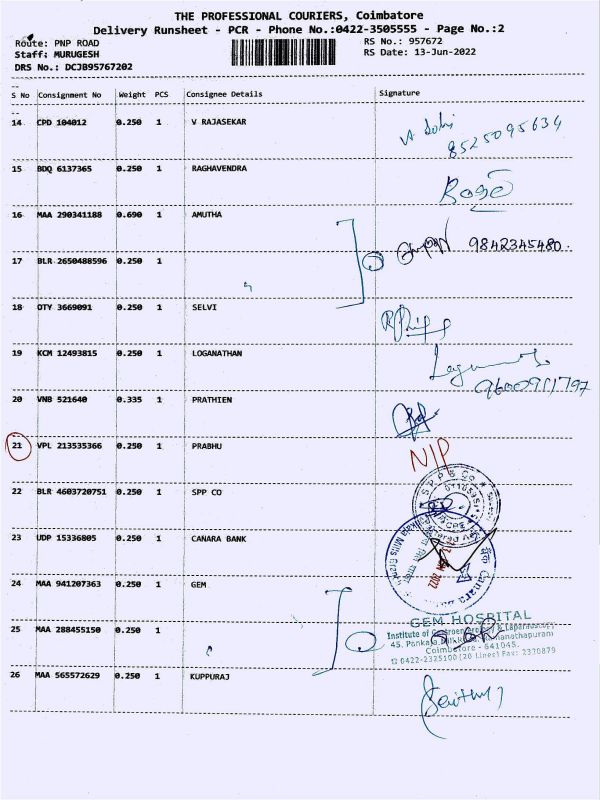 THE PROFESSIONAL COURIERS, Coimbatore
Delivery Runsheet - PCR - Phone No.:0422-3505555 - Page No.:2
Route: PNP ROAD
RS No.: 957672
Staff: MURUGESH
RS Date: 13-Jun-2022
DRS No.: DCJB95767202
S No Consignment No Weight PCS Consignee Details Signature
14 CPD 104012 0.250 1 V RAJASEKAR
8525095634
15 BDQ 6137365 0.250 1 RAGHAVENDRA
16 MAA 290341188 0.690 1 AMUTHA
9842345480.
17 BLR 2650488596 0.250 1
18 OTY 3669091 0.250 1 SELVI
19 KCM 12493815 0.250 1 LOGANATHAN
9600911797
20 VNB 521640 0.335 1 PRATHIEN
21 VPL 213535366 0.250 1 PRABHU
N/P
22 BLR 4603720751 0.250 1 SPP CO
23 UDP 15336805 0.250 1 CANARA BANK
24 MAA 941207363 0.250 1 GEM
GEM HOSPITAL
Institute of
45, Pankaja Mill Road, Ramanathapuram
Coimbatore - 641045.
0422-2325100 (20 Lines) Fax: 2320879
25 MAA 288455150 0.250 1
26 MAA 565572629 0.250 1 KUPPURAJ